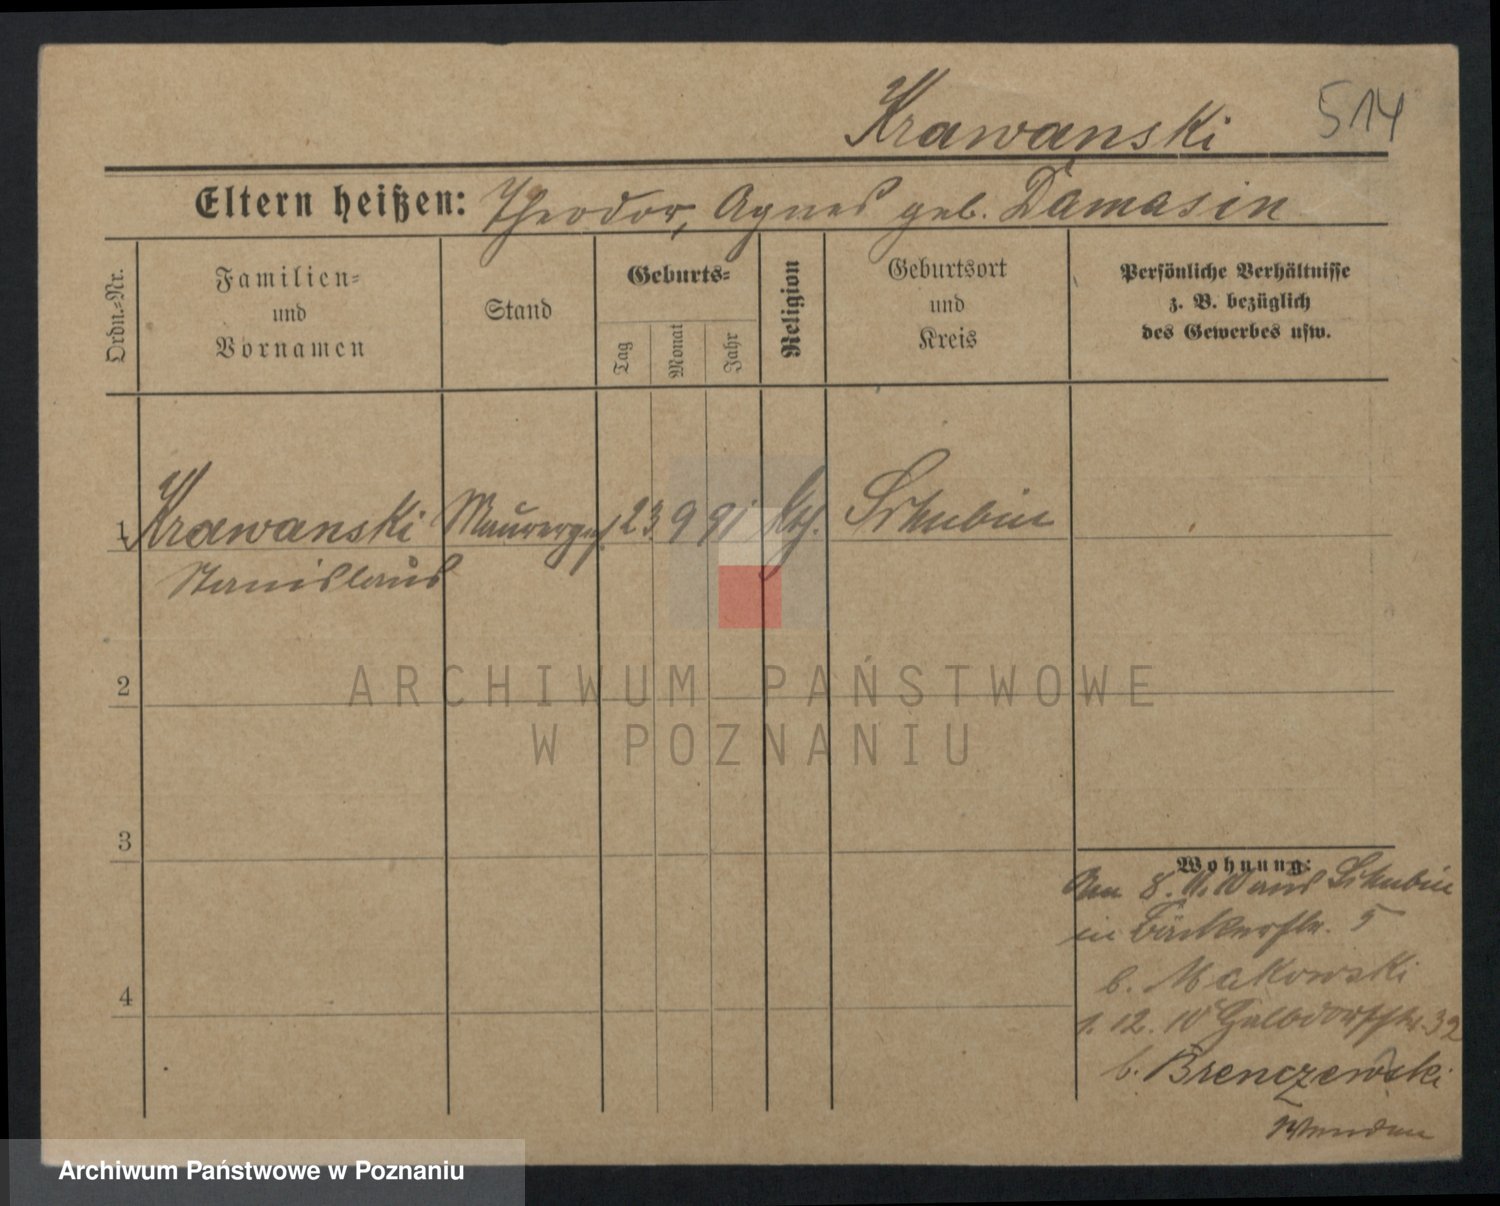 Krawanski 514
Eltern heißen: Theodor, Agnes geb. Damasin
Ordn.=Nr.
Familien=
und
Vornamen
Stand
Geburts=
Tag
Monat
Jahr
Religion
Geburtsort
und
Kreis
Persönliche Verhältnisse
z. B. bezüglich
des Gewerbes usw.
1 Krawanski Maurerges. 23 9 91 kth. Schubin
Stanislaus
2
3
4
Wohnung:
Am 8. 11. 10 aus Schubin
in Bäckerstr. 5
b. Makowski
1. 12. 10 Halbdorfstr. 32
b. Brenczewski
Wenden
ARCHIWUM PAŃSTWOWE
W POZNANIU
Archiwum Państwowe w Poznaniu